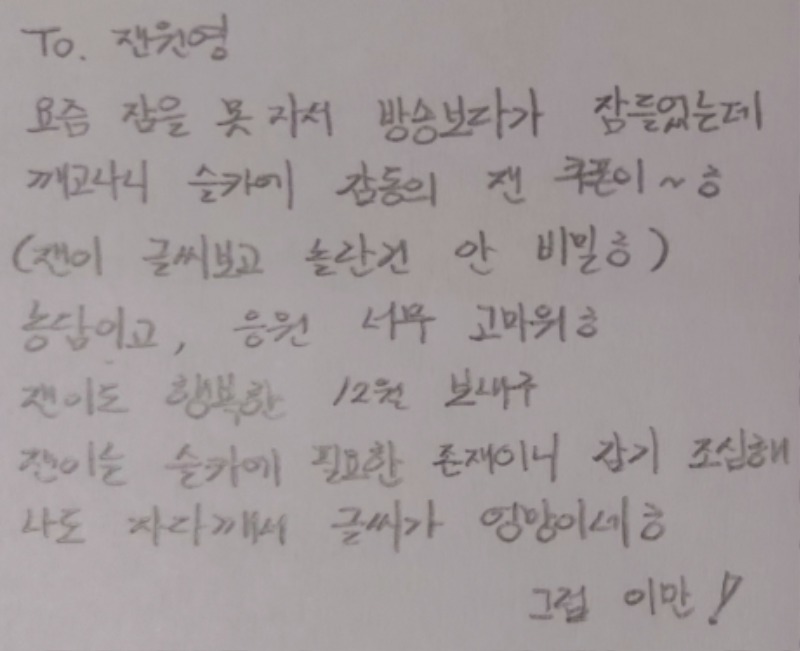 To. 잰원영
요즘 잠을 못 자서 방송보다가 잠들었는데
깨고나니 슬카에 감동의 잰 쿠폰이~ㅎ
(잰이 글씨보고 놀란건 안 비밀ㅎ)
농담이고, 응원 너무 고마워ㅎ
잰이도 행복한 12월 보내구
잰이는 슬카에 필요한 존재이니 감기 조심해
나도 자다깨서 글씨가 엉망이네ㅎ
그럼 이만!